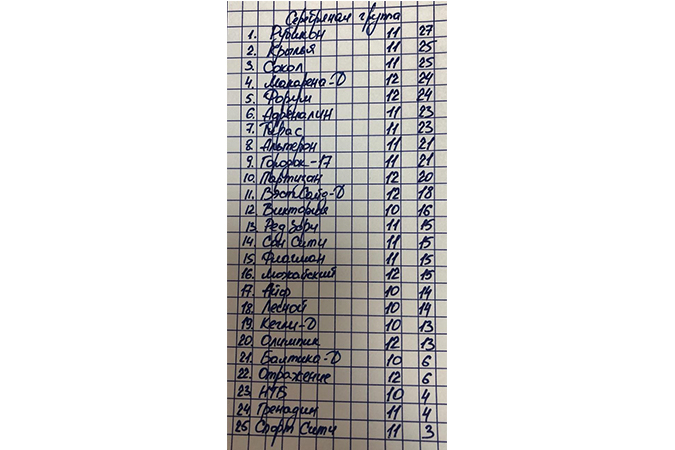 Серебряная группа
1. Рубикон 11 27
2. Крылья 11 25
3. Сокол 11 25
4. Макарена-D 12 24
5. Форум 12 24
6. Адреналин 11 23
7. Тирас 11 23
8. Альтерон 11 21
9. Городок-17 11 21
10. Партизан 12 20
11. Вэст Сайд-D 12 18
12. Виктория 10 16
13. Ред Зорч 11 15
14. Сан Сити 11 15
15. Флагман 11 15
16. Можайский 12 15
17. Айф 10 14
18. Лесной 10 14
19. Кегки-D 10 13
20. Олимпик 12 13
21. Балтика-D 10 6
22. Отражение 12 6
23. НТБ 10 4
24. Гренадин 11 4
25 Спорт Сити 11 3